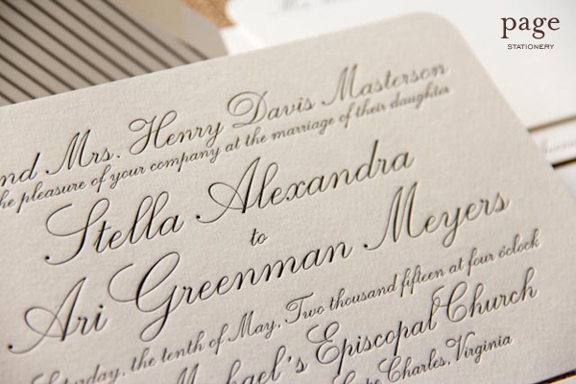 page
STATIONERY
nd Mrs. Henry Davis Masterson
he pleasure of your company at the marriage of their daughter
Stella Alexandra
to
Ari Greenman Meyers
turday, the tenth of May, Two thousand fifteen at four o'clock
hael's Episcopal Church
Charles, Virginia